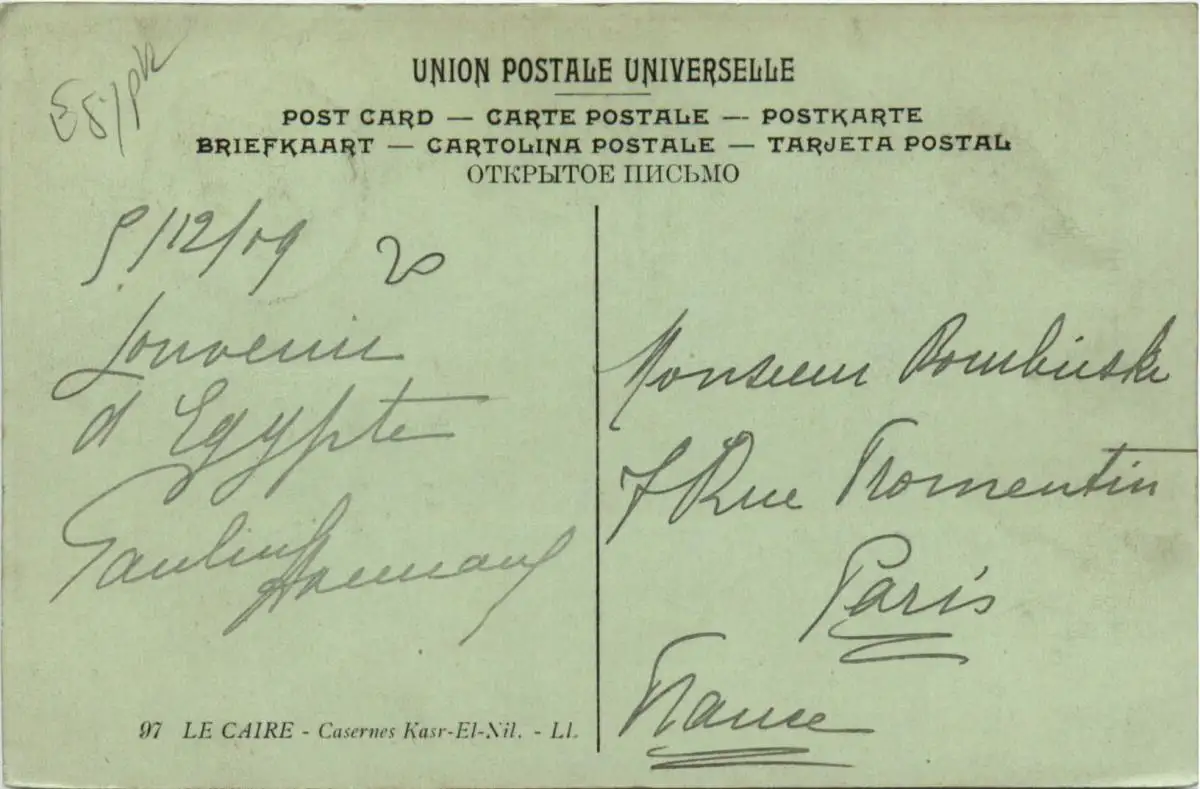 Egypt
UNION POSTALE UNIVERSELLE
POST CARD — CARTE POSTALE — POSTKARTE
BRIEFKAART — CARTOLINA POSTALE — TARJETA POSTAL
ОТКРЫТОЕ ПИСЬМО
5/12/09 20
Souvenir
d'Egypte
Pauline
Monsieur
7 Rue Fromentin
Paris
France
97 LE CAIRE - Casernes Kasr-El-Nil. - LL.